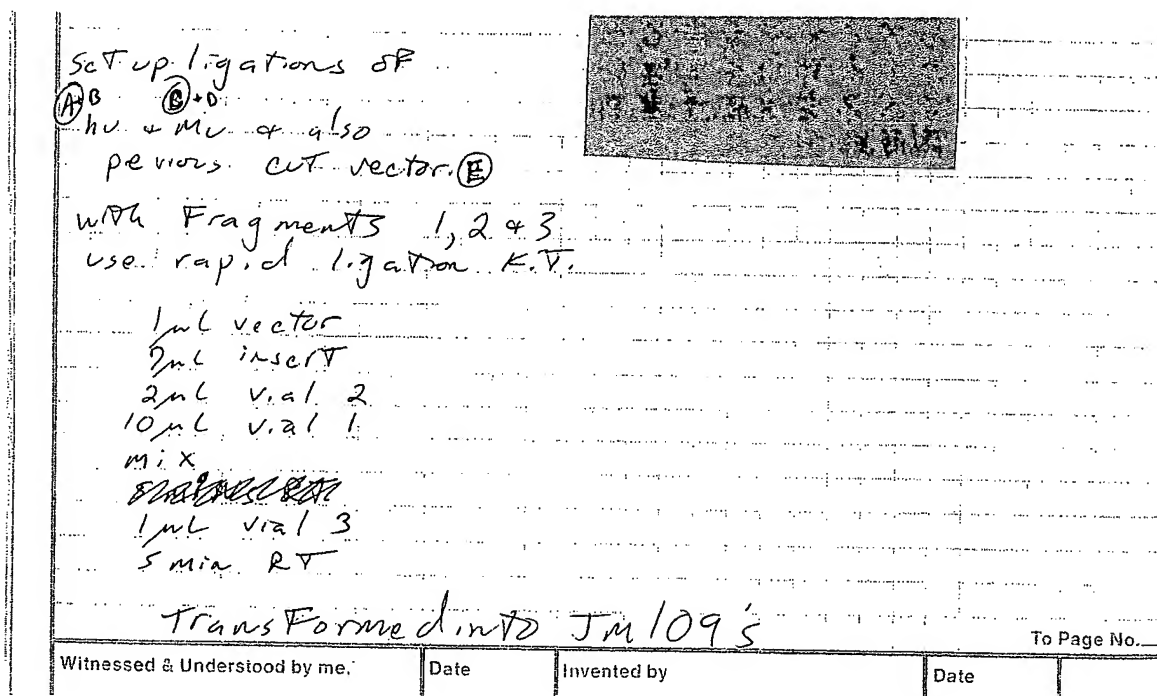 Set up ligations of
A+B C+D
hv + mv + also
pevious cut vector. E
with Fragments 1, 2 + 3
use rapid ligation Kit.
1 µL vector
7 µL insert
2 µL vial 2
10 µL vial 1
mix
1 µL vial 3
5 min RT
Transformed into JM109's
To Page No.
Witnessed & Understood by me. Date Invented by Date